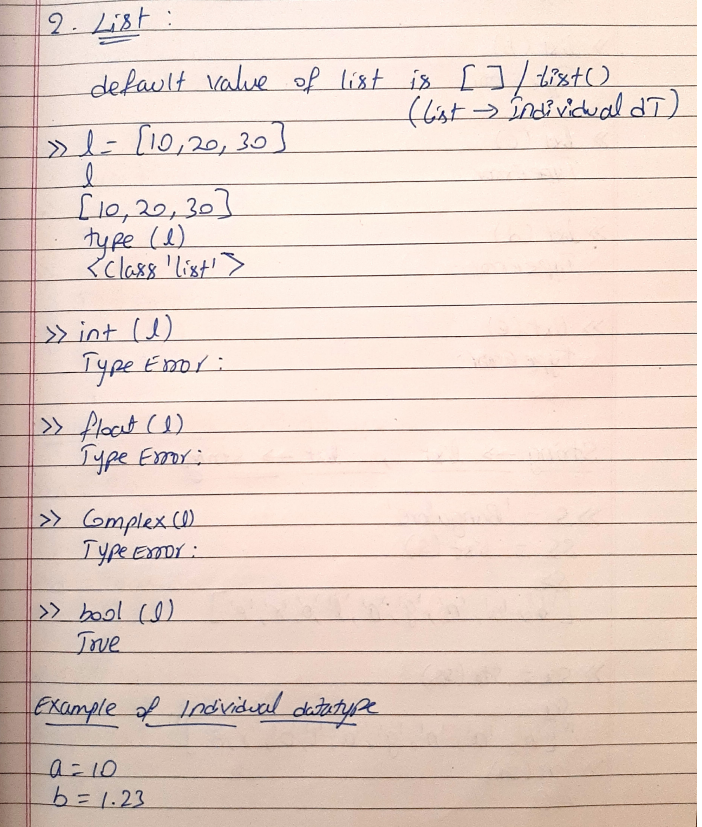 2. List :
default value of list is [ ] / list()
(list → Individual dT)
>> l = [10, 20, 30]
l
[10, 20, 30]
type (l)
<class 'list'>
>> int (l)
Type Error :
>> float (l)
Type Error :
>> Complex (l)
Type Error :
>> bool (l)
True
Example of Individual datatype
a = 10
b = 1.23